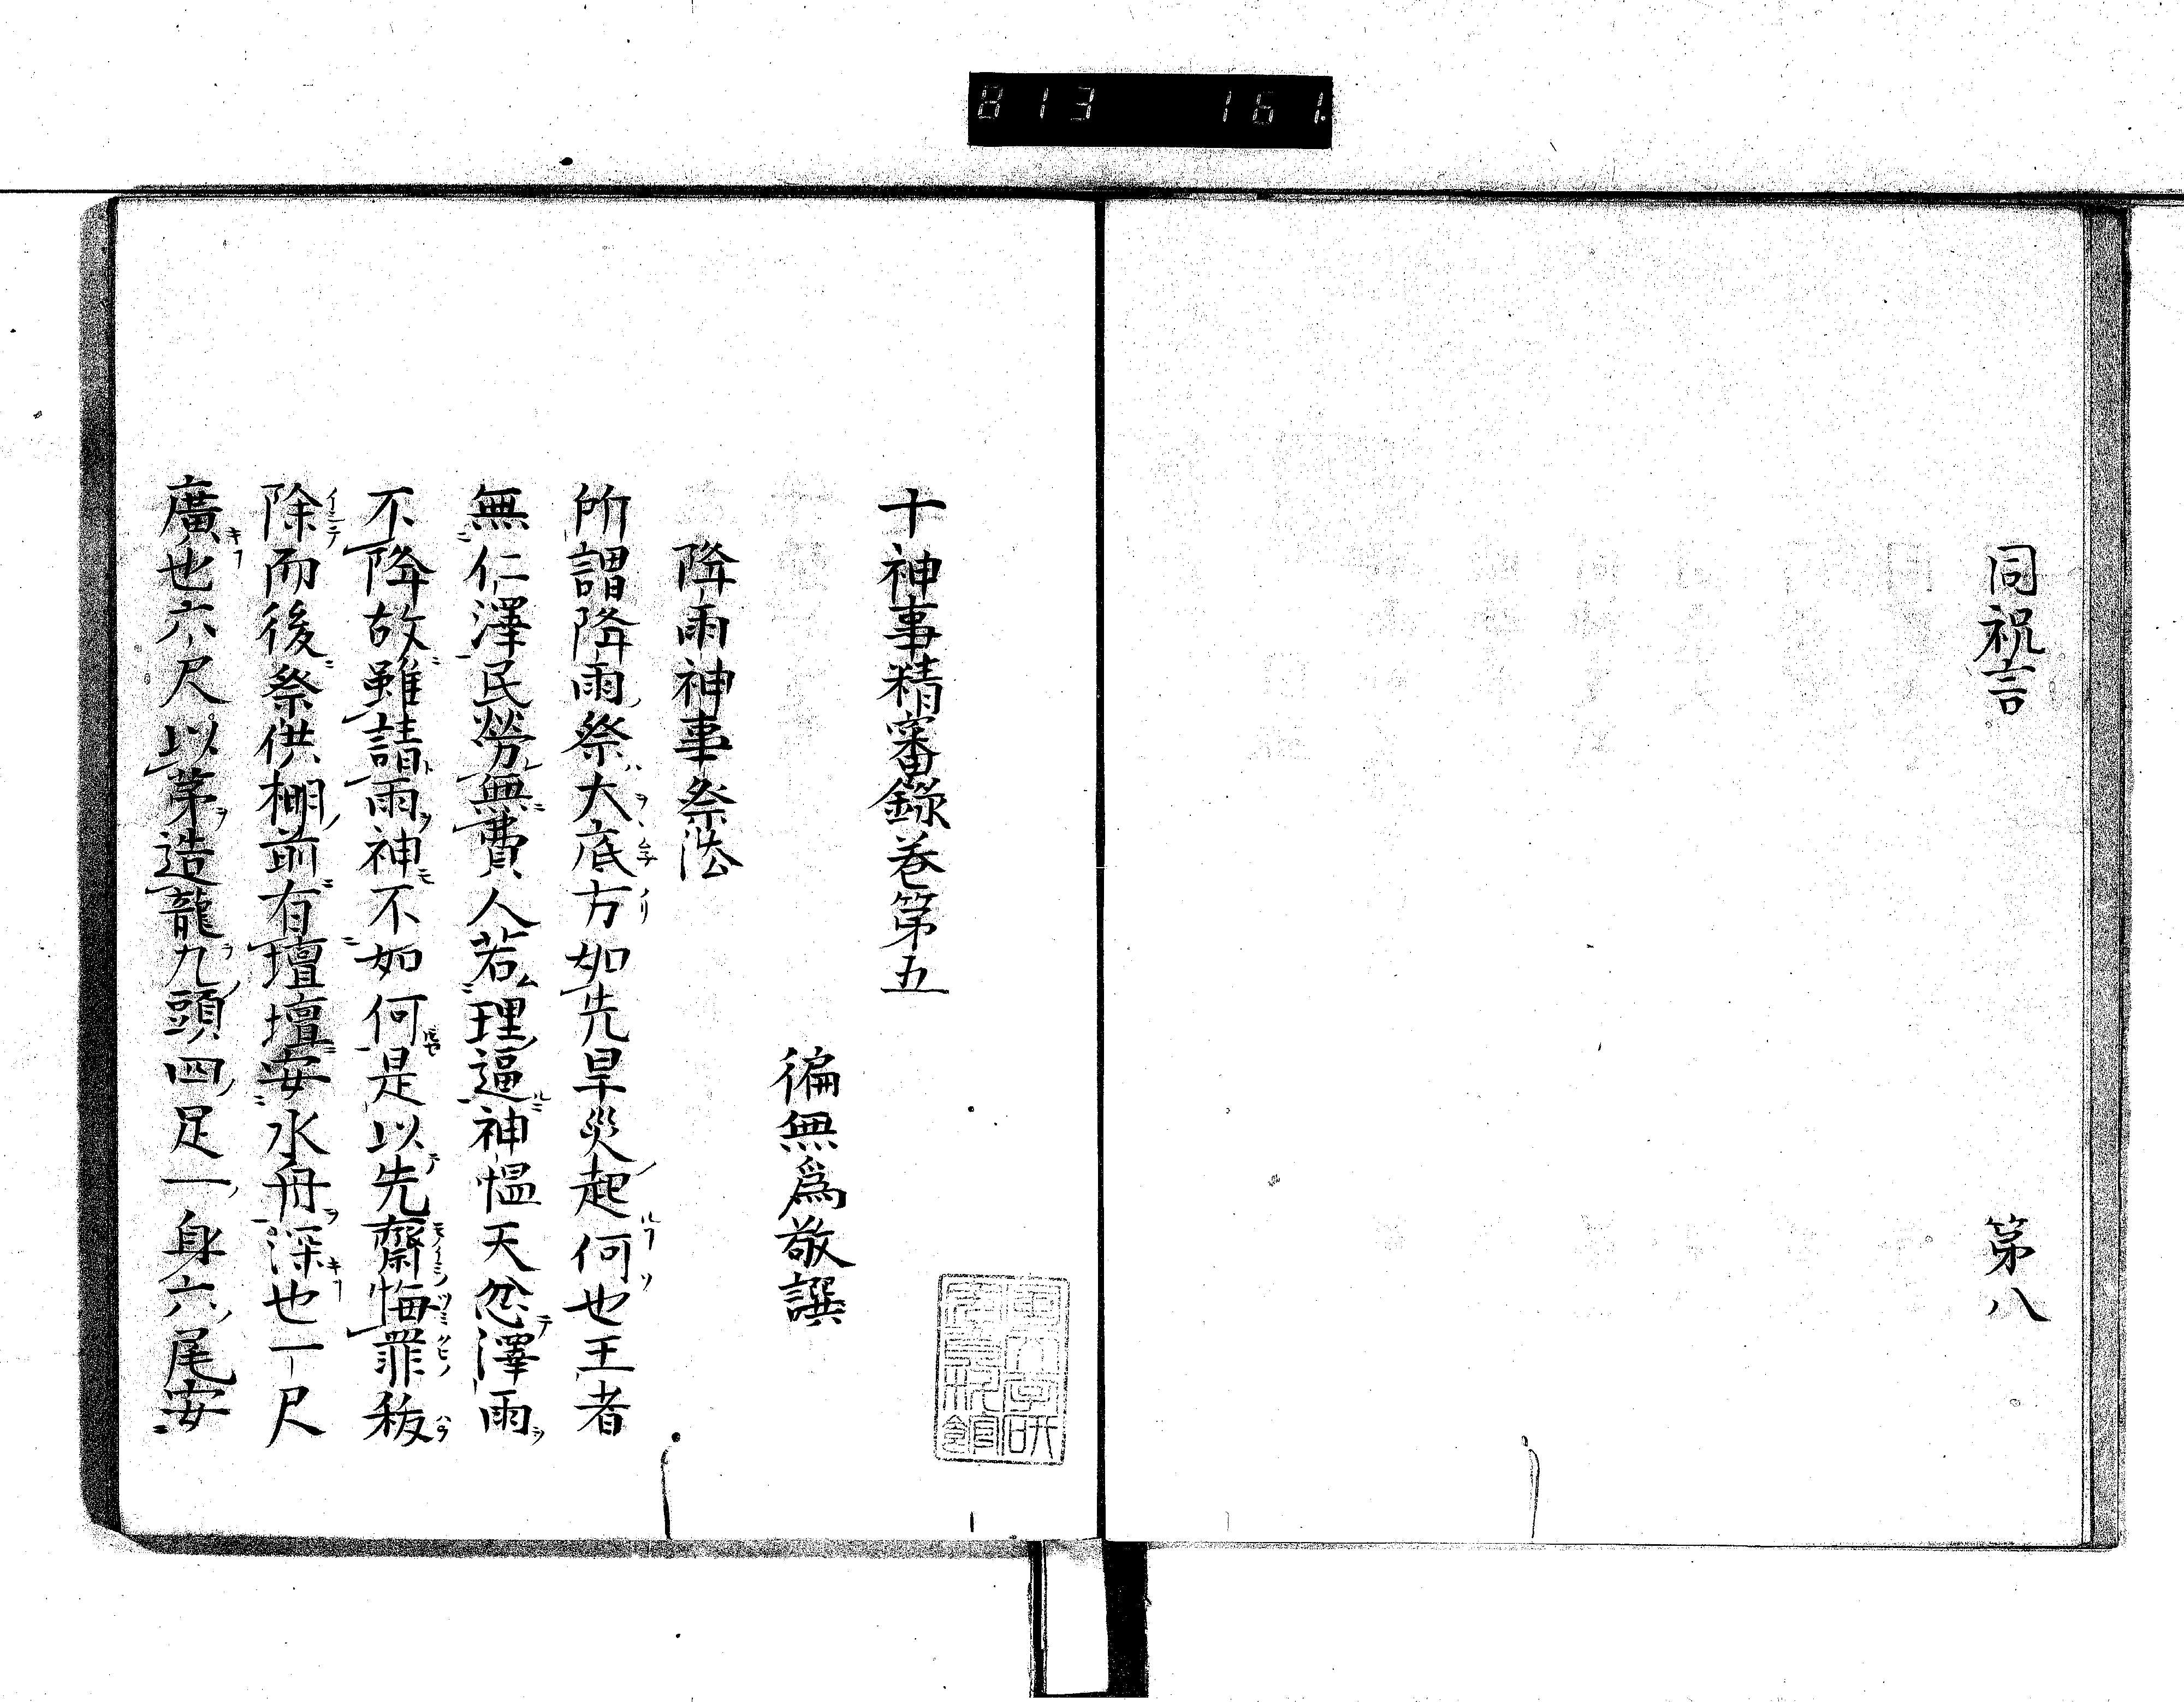 813 161.
同祝言 第八
十神事精審錄卷第五
徧無爲敬譔
降雨神事祭法
所謂降雨祭大底方如先旱災起何也王者
無仁澤民勞無費人若理逼神慍天忿澤雨
不降故雖請雨神不如何是以先齋悔罪秡
除而後祭供棚前有壇壇安水舟深也一尺
廣也六尺以茅造龍九頭四足一身六尾安